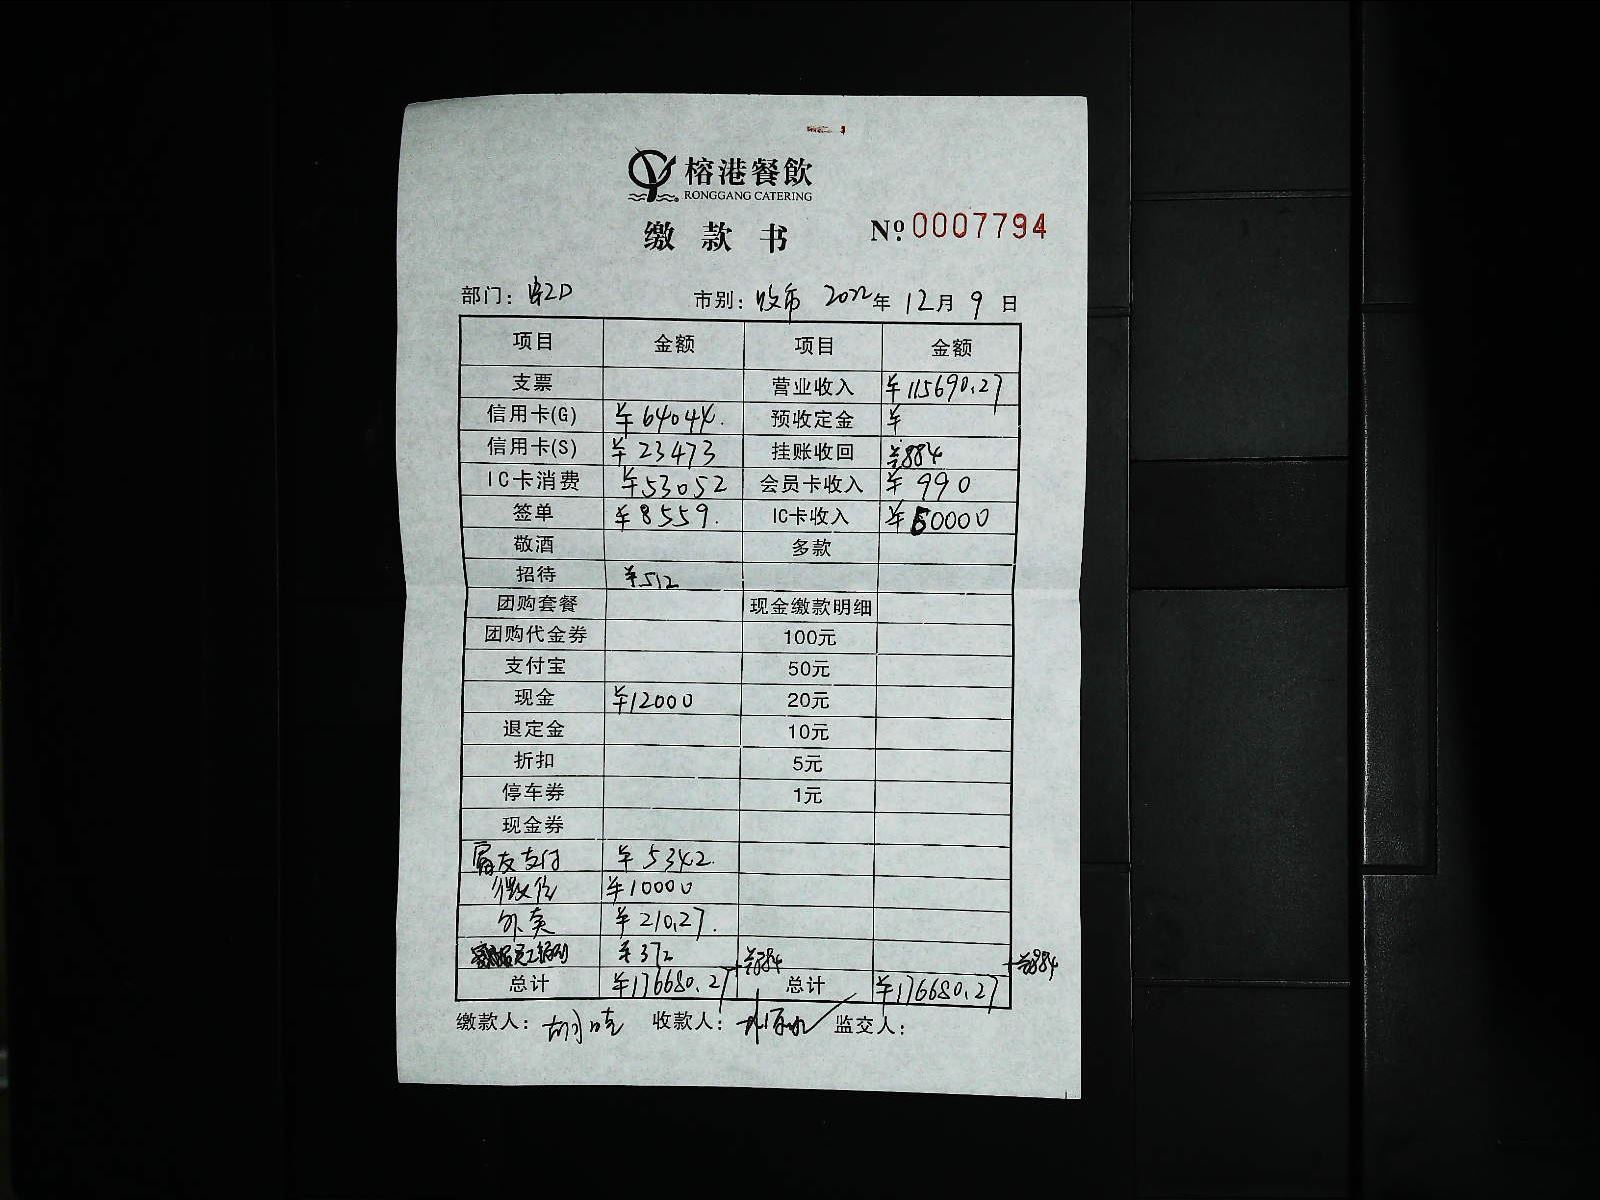 榕港餐飲
RONGGANG CATERING
缴款书 Nº 0007794
部门: 市别: 收市 2022年12月9日
项目 金额 项目 金额
支票 营业收入 ¥115690.27
信用卡(G) ¥64044. 预收定金 ¥
信用卡(S) ¥23473 挂账收回 ¥884
IC卡消费 ¥53052 会员卡收入 ¥990
签单 ¥8559. IC卡收入 ¥60000
敬酒 多款
招待 ¥512
团购套餐 现金缴款明细
团购代金券 100元
支付宝 50元
现金 ¥12000 20元
退定金 10元
折扣 5元
停车券 1元
现金券
支付 ¥5342.
微信 ¥10000
外卖 ¥210.27.
员工 ¥372
+¥884 +¥884
总计 ¥176680.27 总计 ¥176680.27
缴款人: 收款人: 监交人: